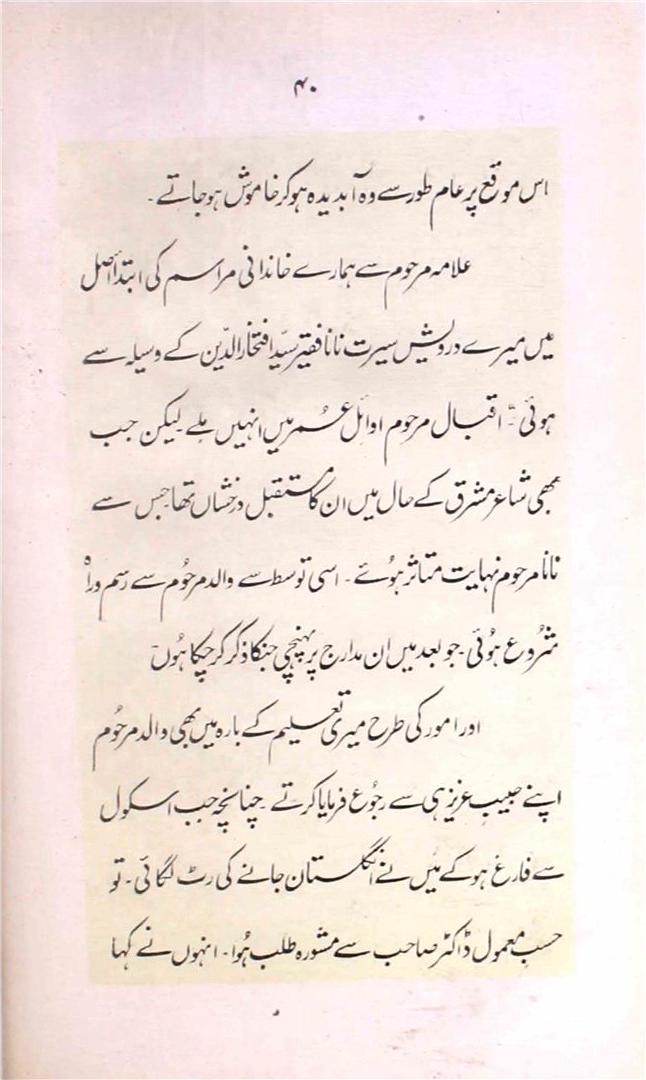 ۴۰
اس موقع پر عام طور سے وہ آبدیدہ ہو کر خاموش ہو جاتے۔
علامہ مرحوم سے ہمارے خاندانی مراسم کی ابتدا اصل
میں میرے درویش سیرت نانا فقیر سیّد افتخار الدّین کے وسیلہ سے
ہوئی۔ اقبال مرحوم اوائل عُمر میں انہیں ملے لیکن جب
بھی شاعرِ مشرق کے حال میں ان کا مستقبل درخشاں تھا جس سے
نانا مرحوم نہایت متاثر ہوئے۔ اسی توسط سے والد مرحُوم سے رسم و راہ
شرُوع ہُوئی۔ جو بعد میں ان مدارج پر پہنچی جنکا ذکر کر چکا ہُوں۔
اور امور کی طرح میری تعلیم کے بارہ میں بھی والد مرحُوم
اپنے حبیبِ عزیز ہی سے رجُوع فرمایا کرتے۔ چنانچہ جب اسکول
سے فارغ ہو کے میں نے انگلستان جانے کی رٹ لگائی۔ تو
حسبِ معمول ڈاکٹر صاحب سے مشورہ طلب ہُوا۔ انہوں نے کہا